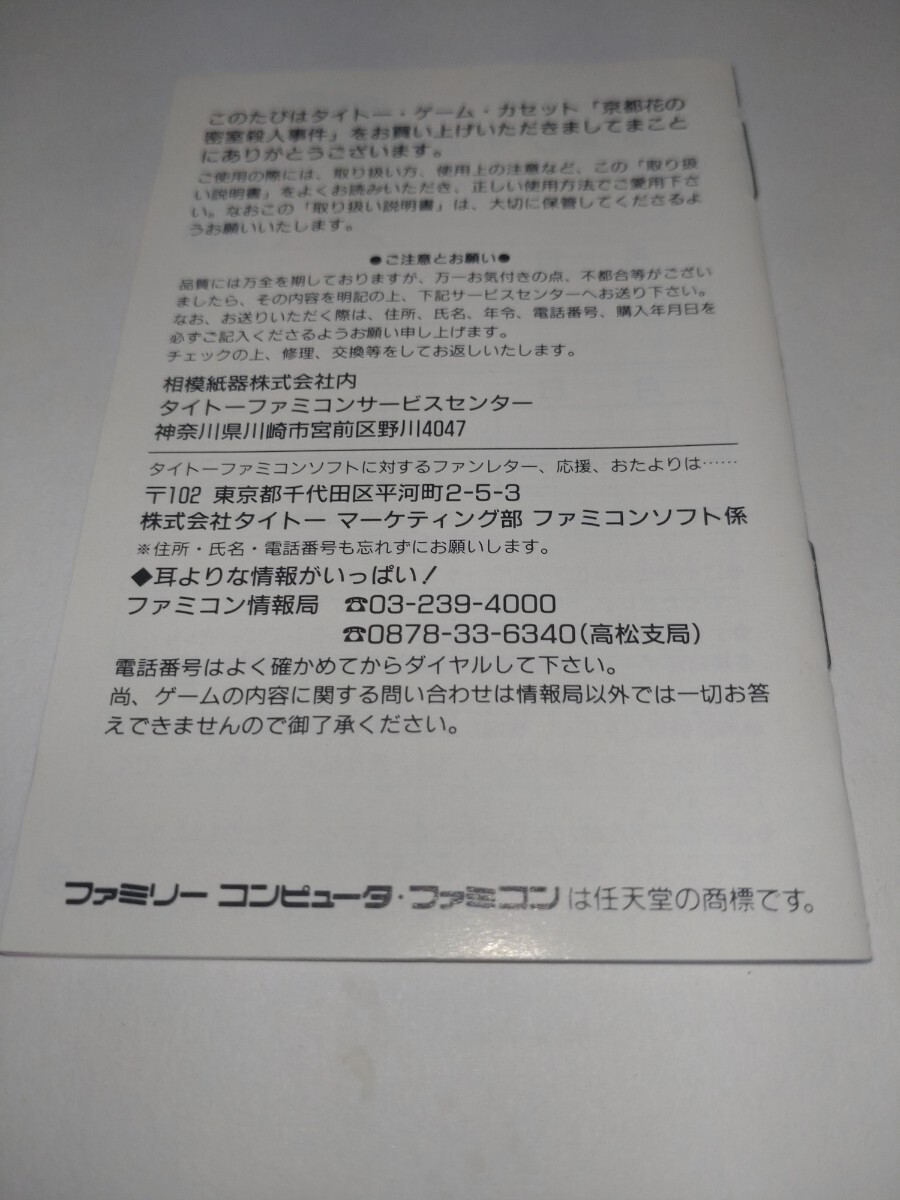 このたびはタイトー・ゲーム・カセット「京都花の
密室殺人事件」をお買い上げいただきましてまこと
にありがとうございます。
ご使用の際には、取り扱い方、使用上の注意など、この「取り扱
い説明書」をよくお読みいただき、正しい使用方法でご愛用下さ
い。なおこの「取り扱い説明書」は、大切に保管してくださるよ
うお願いいたします。
●ご注意とお願い●
品質には万全を期しておりますが、万一お気付きの点、不都合等がござい
ましたら、その内容を明記の上、下記サービスセンターへお送り下さい。
なお、お送りいただく際は、住所、氏名、年令、電話番号、購入年月日を
必ずご記入くださるようお願い申し上げます。
チェックの上、修理、交換等をしてお返しいたします。
相模紙器株式会社内
タイトーファミコンサービスセンター
神奈川県川崎市宮前区野川4047
タイトーファミコンソフトに対するファンレター、応援、おたよりは……
〒102 東京都千代田区平河町2-5-3
株式会社タイトー マーケティング部 ファミコンソフト係
※住所・氏名・電話番号も忘れずにお願いします。
◆耳よりな情報がいっぱい！
ファミコン情報局 ☎03-239-4000
☎0878-33-6340(高松支局)
電話番号はよく確かめてからダイヤルして下さい。
尚、ゲームの内容に関する問い合わせは情報局以外では一切お答
えできませんので御了承ください。
ファミリー コンピュータ・ファミコンは任天堂の商標です。